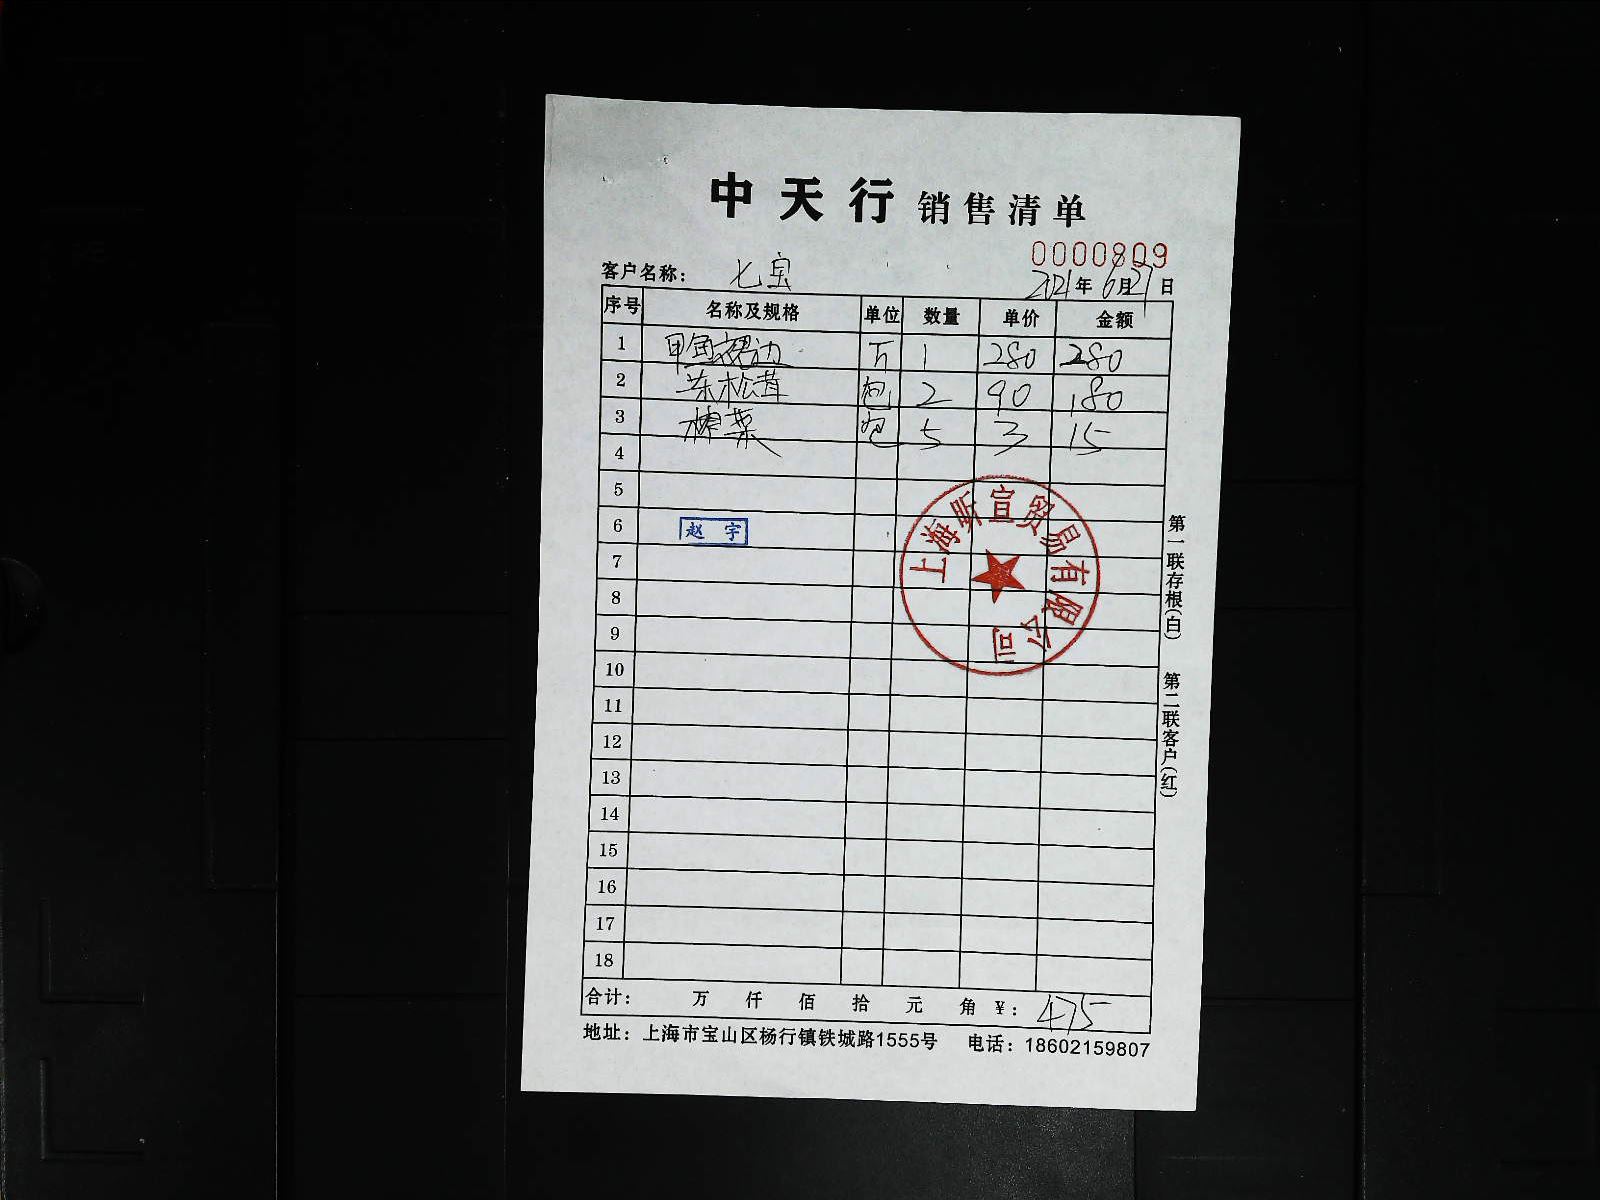 中天行 销售清单
0000809
客户名称： 七宝 2021年6月27日
序号 名称及规格 单位 数量 单价 金额
1 甲鱼裙边 1 280 280
2 松茸 包 2 90 180
3 榨菜 包 5 3 15
4
5
6 赵宇
7
8
9
10
11
12
13
14
15
16
17
18
上海昕宣贸易有限公司
合计： 万 仟 佰 拾 元 角 ¥： 475
地址：上海市宝山区杨行镇铁城路1555号 电话：18602159807
第一联存根(白)
第二联客户(红)